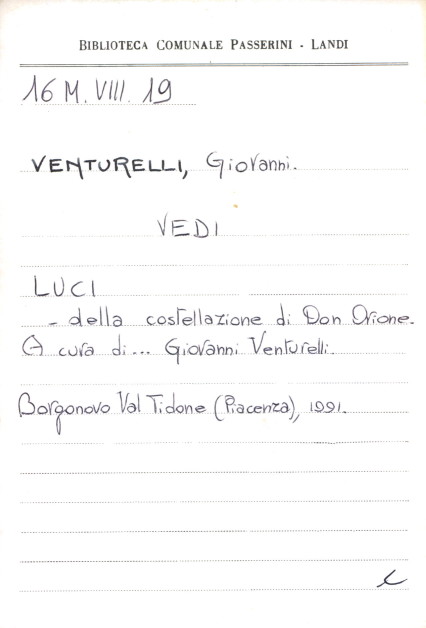 BIBLIOTECA COMUNALE PASSERINI - LANDI
16 M. VIII. 19
VENTURELLI, Giovanni.
VEDI
LUCI
- della costellazione di Don Orione.
A cura di... Giovanni Venturelli.
Borgonovo Val Tidone (Piacenza), 1991.